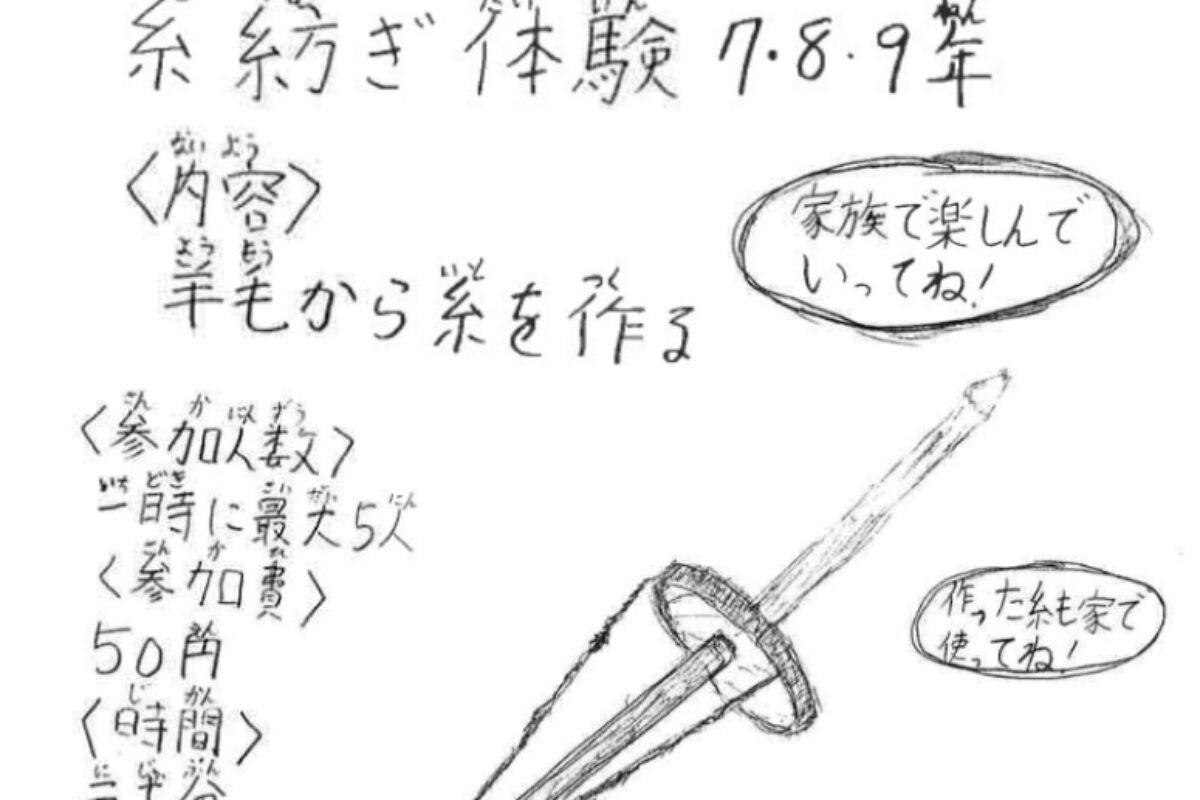 糸紡ぎ体験 7・8・9年
〈内容〉
羊毛から糸を作る
家族で楽しんで
いってね!
〈参加人数〉
一時に最大5人
〈参加費〉
50円
作った糸も家で
使ってね!
〈時間〉
二十分